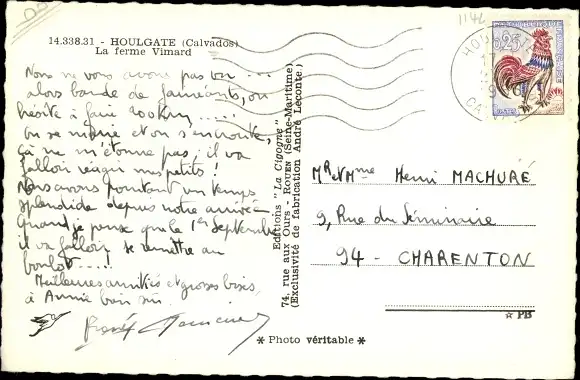 14.338.31 - HOULGATE (Calvados)
La ferme Vimard
Nous ne vous avons pas vu ...
alors bande de fainéants, on
hésite à faire 200 km .....
On se marie et on s'encroûte,
ça ne m'étonne pas, il va
falloir réagir mes petits !
Nous avons pourtant un temps
splendide depuis notre arrivée
Quand je pense que le 1er Septembre
il va falloir se remettre au
boulot .....!
Meilleures amitiés et grosses bises,
à Annie bien sûr.
Editions "La Cigogne"
74, rue aux Ours - ROUEN (Seine-Maritime)
(Exclusivité de fabrication André Leconte.)
* Photo véritable *
1142
0,25
Mr et Mme Henri MACHURÉ
9, Rue du Séminaire
94 - CHARENTON
☆ PB